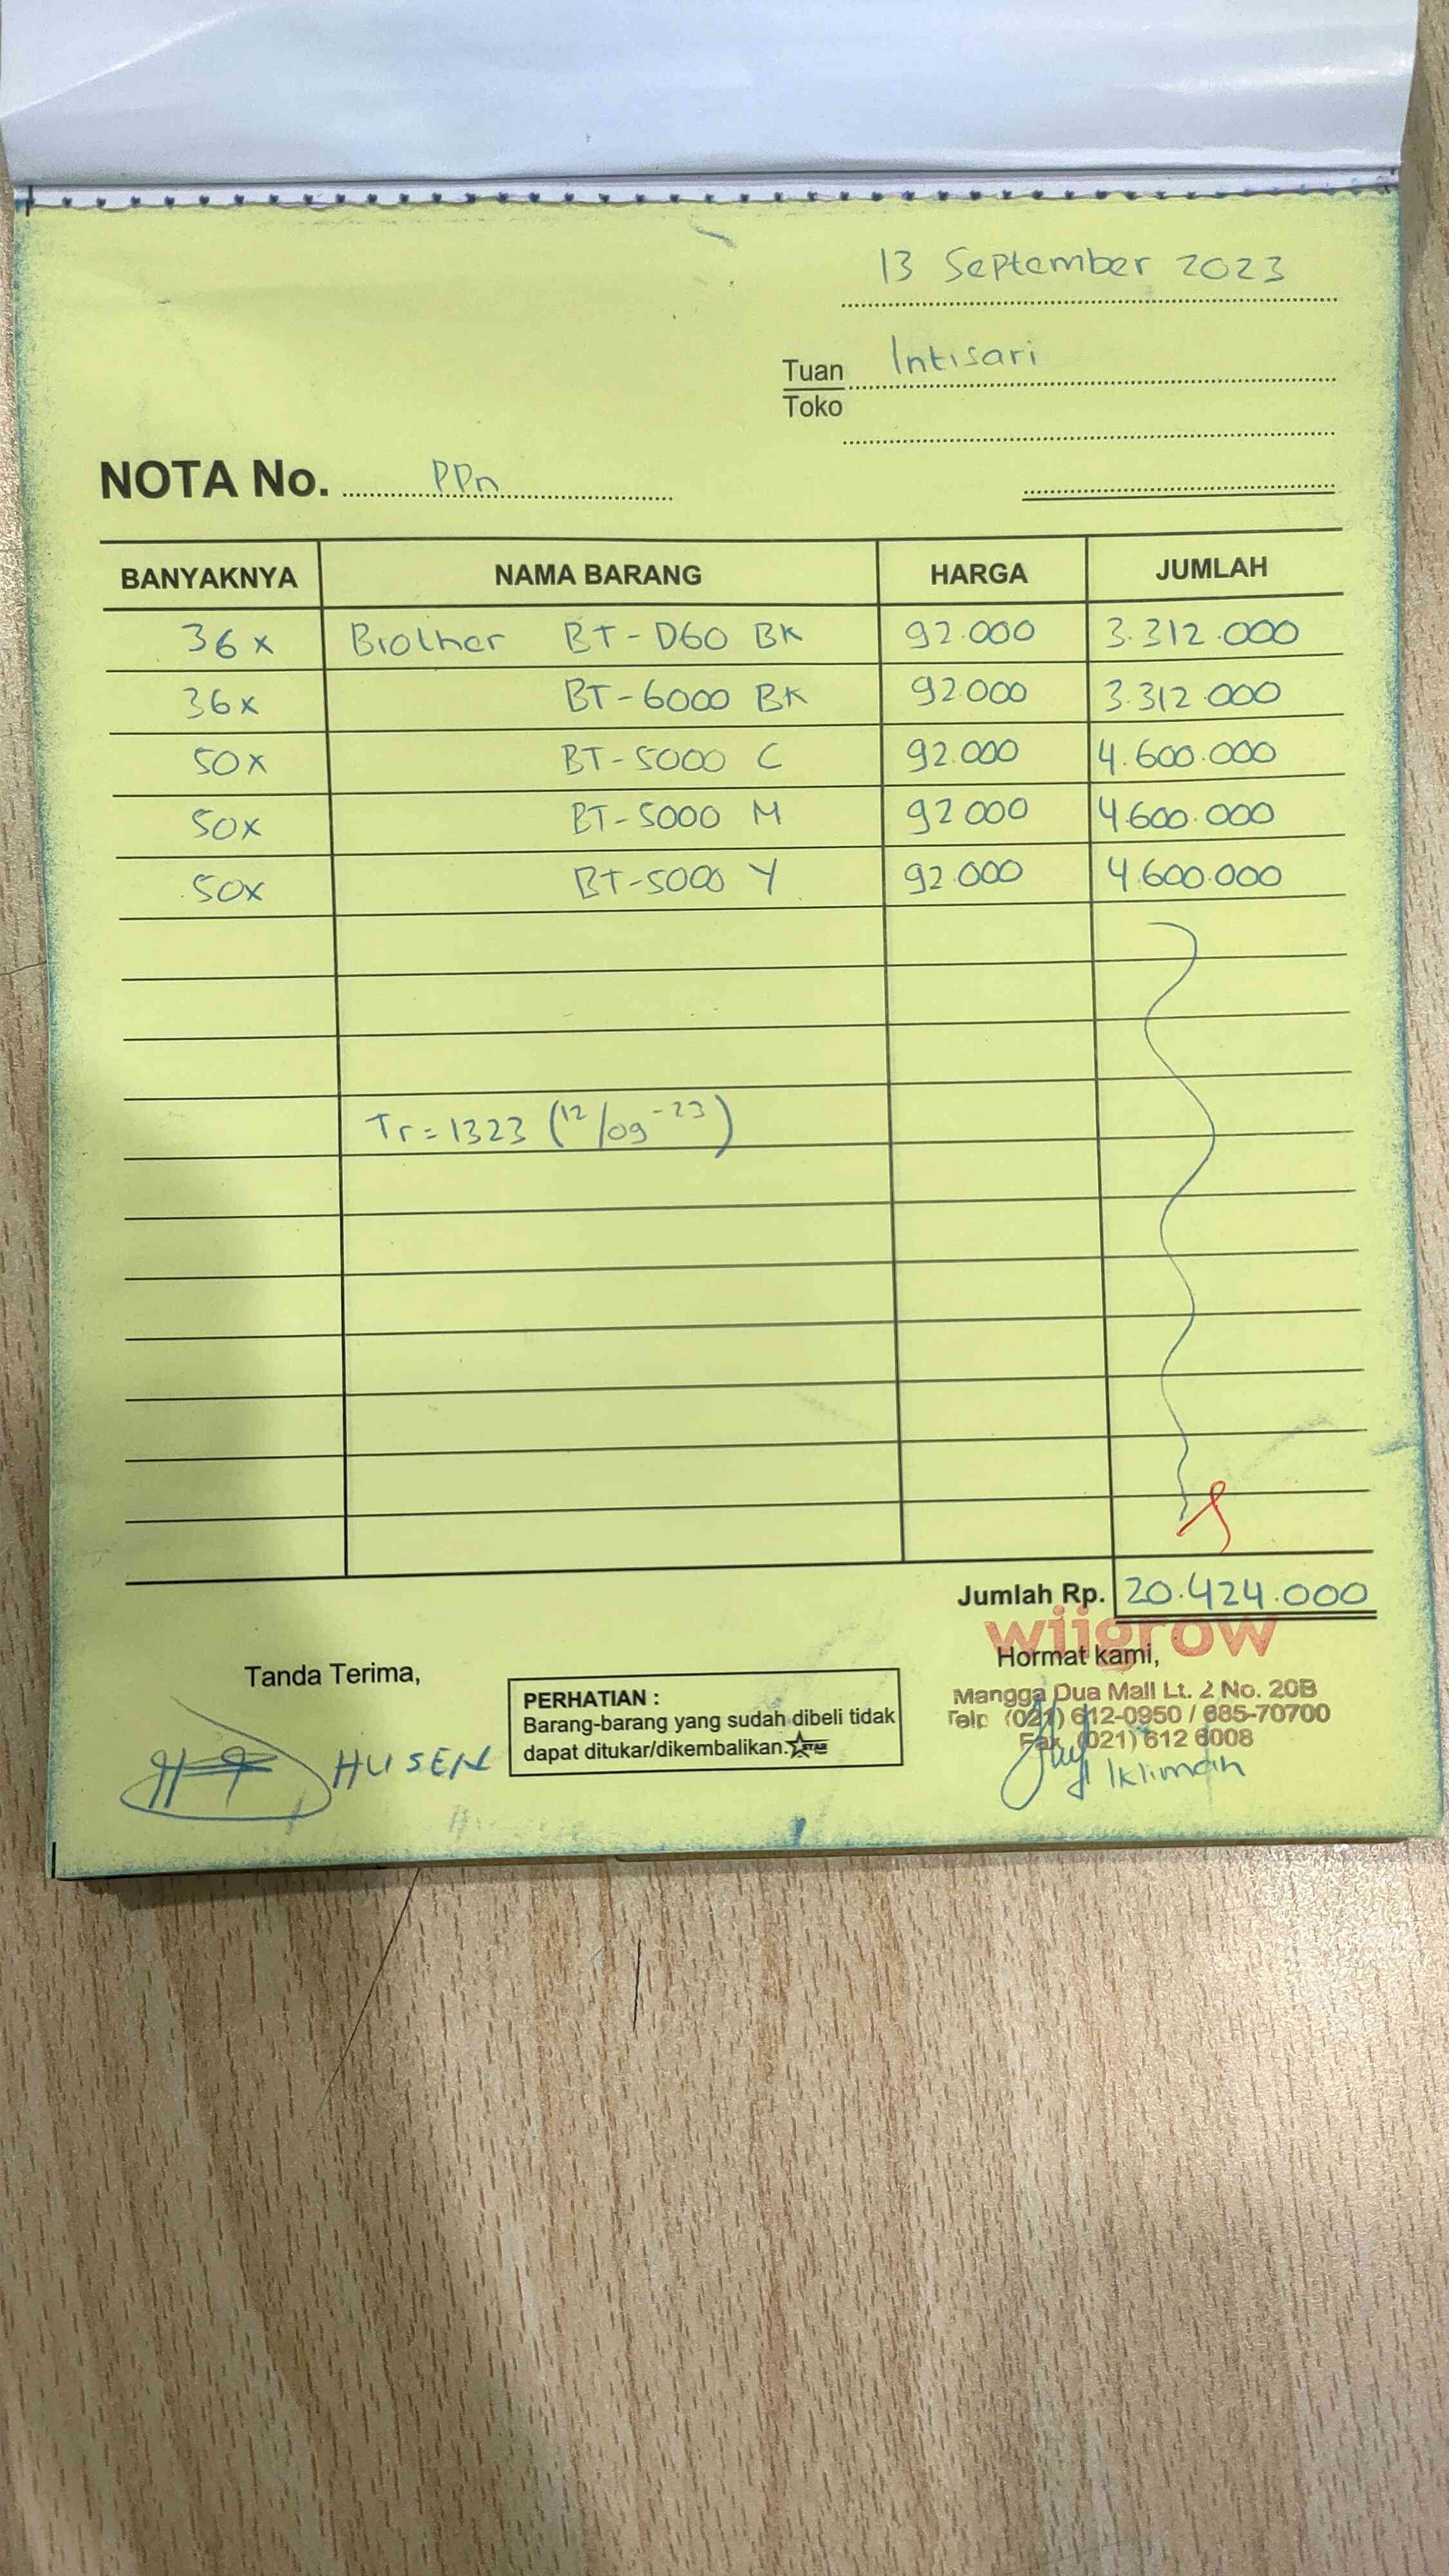 13 September 2023
Tuan Intisari
Toko
NOTA No. PPn
BANYAKNYA NAMA BARANG HARGA JUMLAH
36 x Brother BT-D60 BK 92.000 3.312.000
36x BT-6000 BK 92.000 3.312.000
50x BT-5000 C 92.000 4.600.000
50x BT-5000 M 92 000 4.600.000
50x BT-5000 Y 92.000 4.600.000
Tr = 1323 (12/09-23)
Jumlah Rp. 20.424.000
wijgrow
Tanda Terima,
Hormat kami,
PERHATIAN :
Barang-barang yang sudah dibeli tidak
dapat ditukar/dikembalikan. STAR
Mangga Dua Mall Lt. 2 No. 20B
Telp (021) 612-0950 / 685-70700
Fax (021) 612 6008
HUSEN
Iklimah